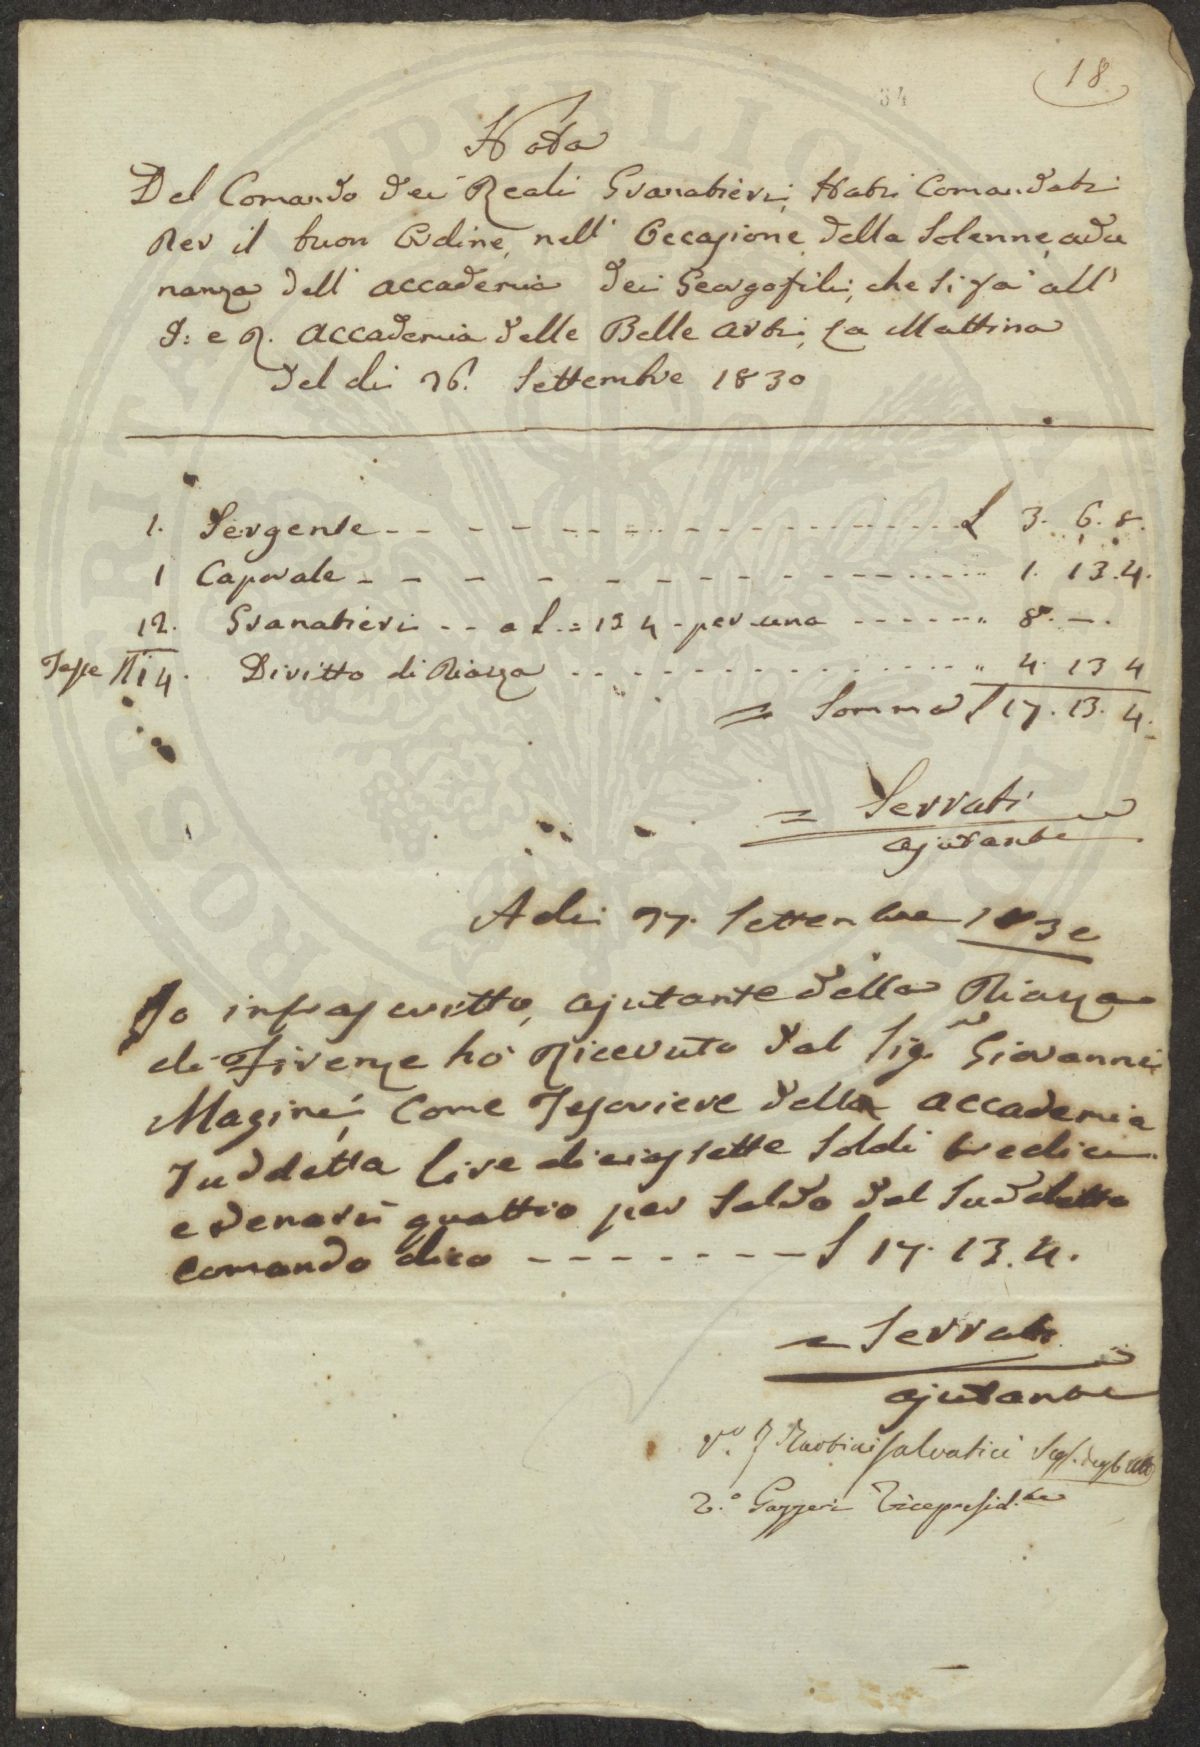 18
34
Nota
Del Comando dei Reali Granatieri, Stati Comandati
Per il buon Ordine, nell' Occasione della Solenne adu
nanza dell' accademia dei Georgofili, che si fa all'
I: e R. accademia delle Belle arti, la Mattina
del di 26. Settembre 1830
1. Sergente £ 3. 6. 8.
1 Caporale " 1. 13. 4.
12. Granatieri a £ = 13 4 per uno " 8. — .
Teste N 14. Diritto di Piazza " 4. 13 4
= Somma £ 17. 13. 4.
= Serrati
ajutante
A di 27. Settembre 1830
Io infrascritto, ajutante della Piazza
di Firenze ho Ricevuto dal Sig. Giovanni
Magini, Come Tesoriere della accademia
Suddetta Lire diciassette Soldi tredici
e denari quattro per Saldo del Suddetto
comando dico £ 17. 13. 4.
= Serrati
ajutante
V.o F. Tartini Salvatici Seg. degli Atti
V.o Gazzeri Vicepresid.te
PUBLICAE
PROSPERITATI